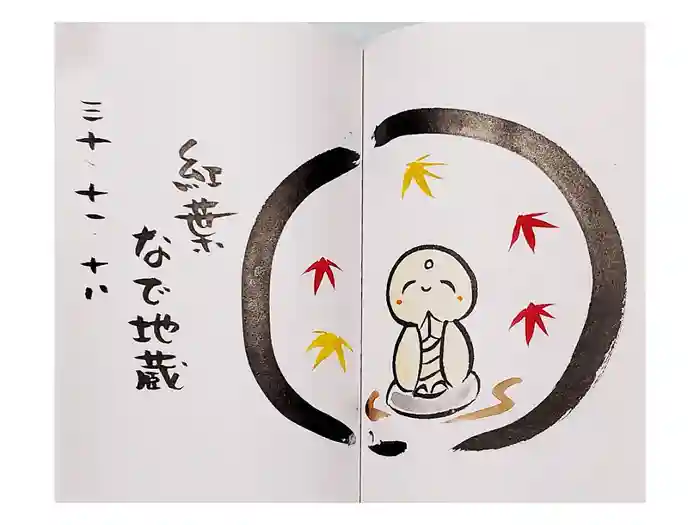 紅葉
なで地蔵
三十、十一、十八